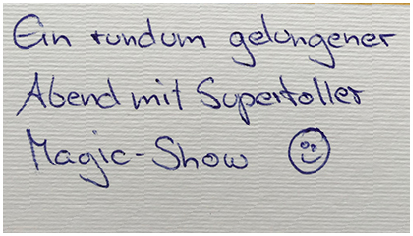 Ein rundum gelungener
Abend mit Supertoller
Magic-Show ☺